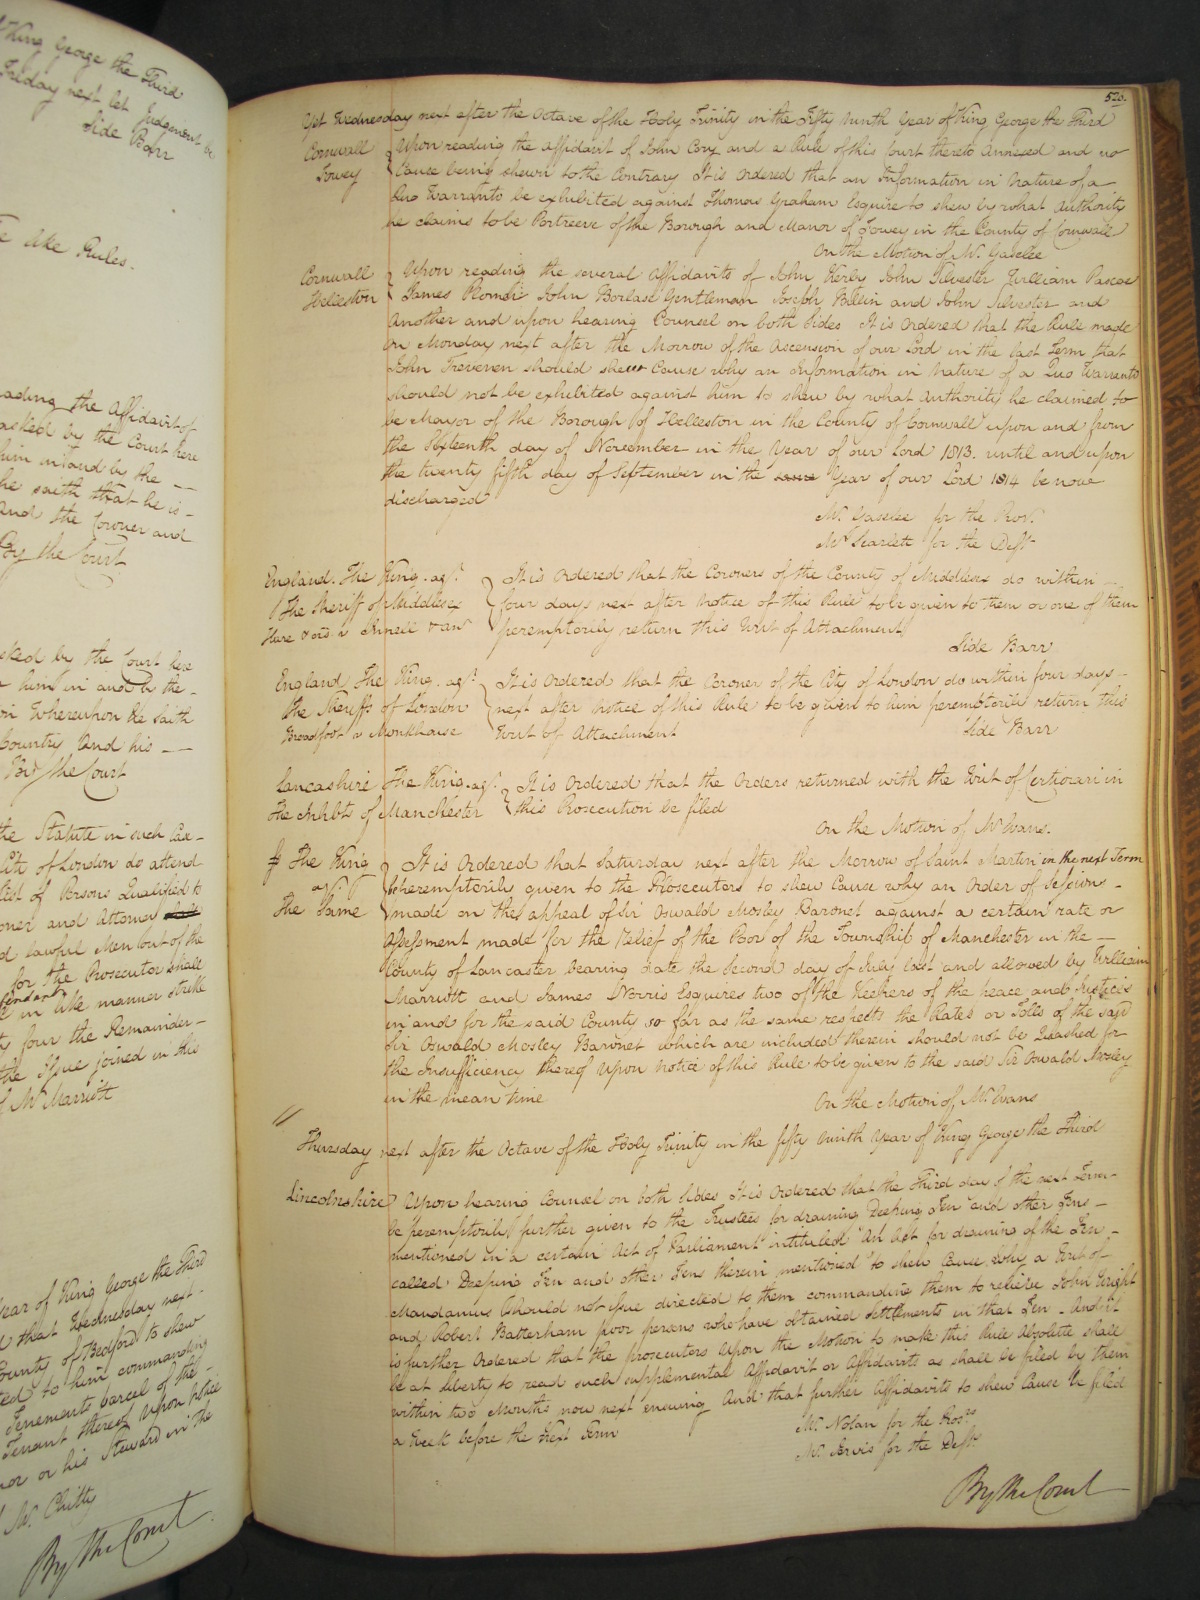 King George the Third
Friday next let Judgement be
Side Barr
like Rules.
reading the Affidavit of
asked by the Court here
him in and by the
he saith that he is
And the Coroner and
By the Court
asked by the Court here
him in and by the
Whereupon he saith
Country And his
By the Court
the Statute in such Case
City of London do attend
List of Persons Qualified to
and Attorney
lawful Men out of the
for the Prosecutor shall
in like manner strike
four the Remainder
the Issue joined in this
Mr. Marriott
Year of King George the Third
that Wednesday next
County of Bedford to shew
to him commanding
Tenements parcel of the
Tenant thereof upon notice
or his Steward in the
Mr. Chitty
By the Court
526.
Yet Wednesday next after the Octave of the Holy Trinity in the Fifty Ninth Year of King George the Third
Cornwall
Fowey
Upon reading the Affidavit of John Cory and a Rule of this Court thereto Annexed and no
Cause being shewn to the Contrary It is Ordered that an Information in Nature of a
Quo Warranto be exhibited against Thomas Graham Esquire to shew by what Authority
he claims to be Portreeve of the Borough and Manor of Fowey in the County of Cornwall
On the Motion of Mr. Gaselee
Cornwall
Helleston
Upon reading the several Affidavits of John Kerby John Silvester William Pascoe
James Plomer John Borlase Gentleman Joseph Bllein and John Silvester and
Another and upon hearing Counsel on both sides It is Ordered that the Rule made
on Monday next after the Morrow of the Ascension of our Lord in the last Term that
John Trevenen should shew Cause why an Information in Nature of a Quo Warranto
should not be exhibited against him to shew by what Authority he claimed to
be Mayor of the Borough of Helleston in the County of Cornwall upon and from
the Sixteenth day of November in the Year of our Lord 1813. until and upon
the twenty fifth day of September in the same Year of our Lord 1814 be now
discharged
Mr. Gaselee for the Pros.
Mr. Scarlett for the Deft
England. The King. agt.
The Sheriff of Middlesex
Hare & ors v & anr
It is Ordered that the Coroners of the County of Middlesex do within
four days next after Notice of this Rule to be given to them or one of them
peremptorily return this Writ of Attachment
Side Barr
England The King. agt.
the Sheriffs of London
Broadfoot v Monkhouse
It is Ordered that the Coroner of the City of London do within four days
next after Notice of this Rule to be given to him peremptorily return this
Writ of Attachment
Side Barr
Lancashire The King. agt.
the Inhbts of Manchester
It is Ordered that the Orders returned with the Writ of Certiorari in
this Prosecution be filed
On the Motion of Mr. Evans.
The King
agt.
the Same
It is Ordered that Saturday next after the Morrow of Saint Martin in the next Term
be peremptorily given to the Prosecutors to shew Cause why an Order of Sessions
made on the appeal of Sir Oswald Mosley Baronet against a certain rate or
Assessment made for the Relief of the Poor of the Township of Manchester in the
County of Lancaster bearing date the Second day of July last and allowed by William
Marriott and James Norris Esquires two of the Keepers of the peace and Justices
in and for the said County so far as the same respects the Rates or Tolls of the said
Sir Oswald Mosley Baronet which are included therein should not be Quashed for
the Insufficiency thereof Upon Notice of this Rule to be given to the said Sir Oswald Mosley
in the mean time
On the Motion of Mr. Evans
Thursday next after the Octave of the Holy Trinity in the fifty Ninth Year of King George the Third
Lincolnshire
Upon hearing Counsel on both sides It is Ordered that the Third day of the next Term
be peremptorily further given to the Trustees for draining Deeping Fen and other Fens
mentioned in a certain Act of Parliament intituled An Act for draining of the Fen
called Deeping Fen and other Fens therein mentioned to shew Cause why a Writ of
Mandamus should not issue directed to them commanding them to relieve John Wright
and Robert Batterham poor persons who have obtained Settlements in that Fen. And it
is further Ordered that the prosecutors upon the Motion to make this Rule Absolute shall
be at liberty to read such supplemental Affidavit or Affidavits as shall be filed by them
within two Months now next ensuing And that further Affidavits to shew Cause be filed
a Week before the Next Term
Mr. Nolan for the Prosrs
Mr. Jervis for the Defts
By the Court